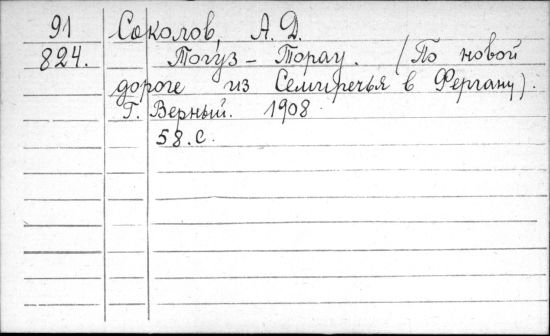 91 Соколов, А. Д.
824. Тогуз-Торау. (По новой
дороге из Семиречья в Фергану).
Г. Верный. 1908
58.с.